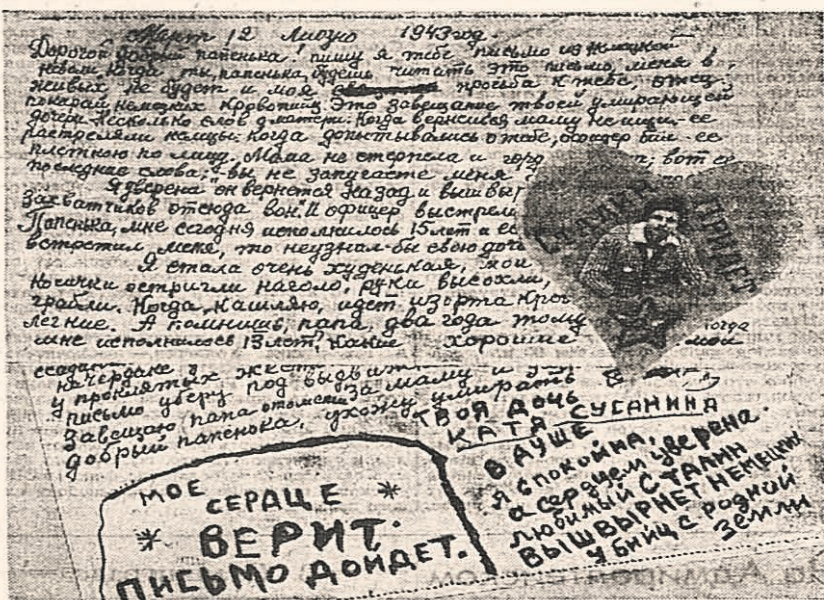 Март 12 Лиозно 1943 год.
Дорогой добрый папенька! пишу я тебе письмо из немецкой
неволи, когда ты, папенька, будешь читать это письмо, меня в
живых не будет и моя просьба к тебе, отец
покарай немецких кровопийц. Это завещание твоей умирающей
дочери. Несколько слов о матери. Когда вернешься маму не ищи, ее
растреляли немцы. когда допытывались о тебе, офицер бил ее
плеткою по лицу. Мама не стерпела и горд вот ее
последние слова; "вы не запугаете меня
Я уверена он вернется назад и вышвыр
захватчиков отсюда вон. И офицер выстрели
Папенька, мне сегодня исполнилось 15 лет и ес
встретил меня, то неузнал-бы свою доч
Я стала очень худенькая, мои
косички остригли наголо, руки высохли,
грабли. Когда кашляю, идет изорта кров
легкие. А помнишь, папа, два года тому когда
мне исполнилось 13 лет? Какие хорошие мои
СТАЛИН ПРИДЕТ
на чердаке
у проклятых
письмо уберу под
Завещаю, папа отомсти за маму и
добрый папенька, ухожу умирать
ТВОЯ ДОЧЬ
КАТЯ СУСАНИНА
В ДУШЕ
Я СПОКОЙНА,
а сердцем уверена.
любимый СТАЛИН
ВЫШВЫРНЕТ НЕМЕЦКИХ
УБИЙЦ с родной
земли
МОЕ
СЕРДЦЕ
ВЕРИТ.
ПИСЬМО ДОЙДЕТ.